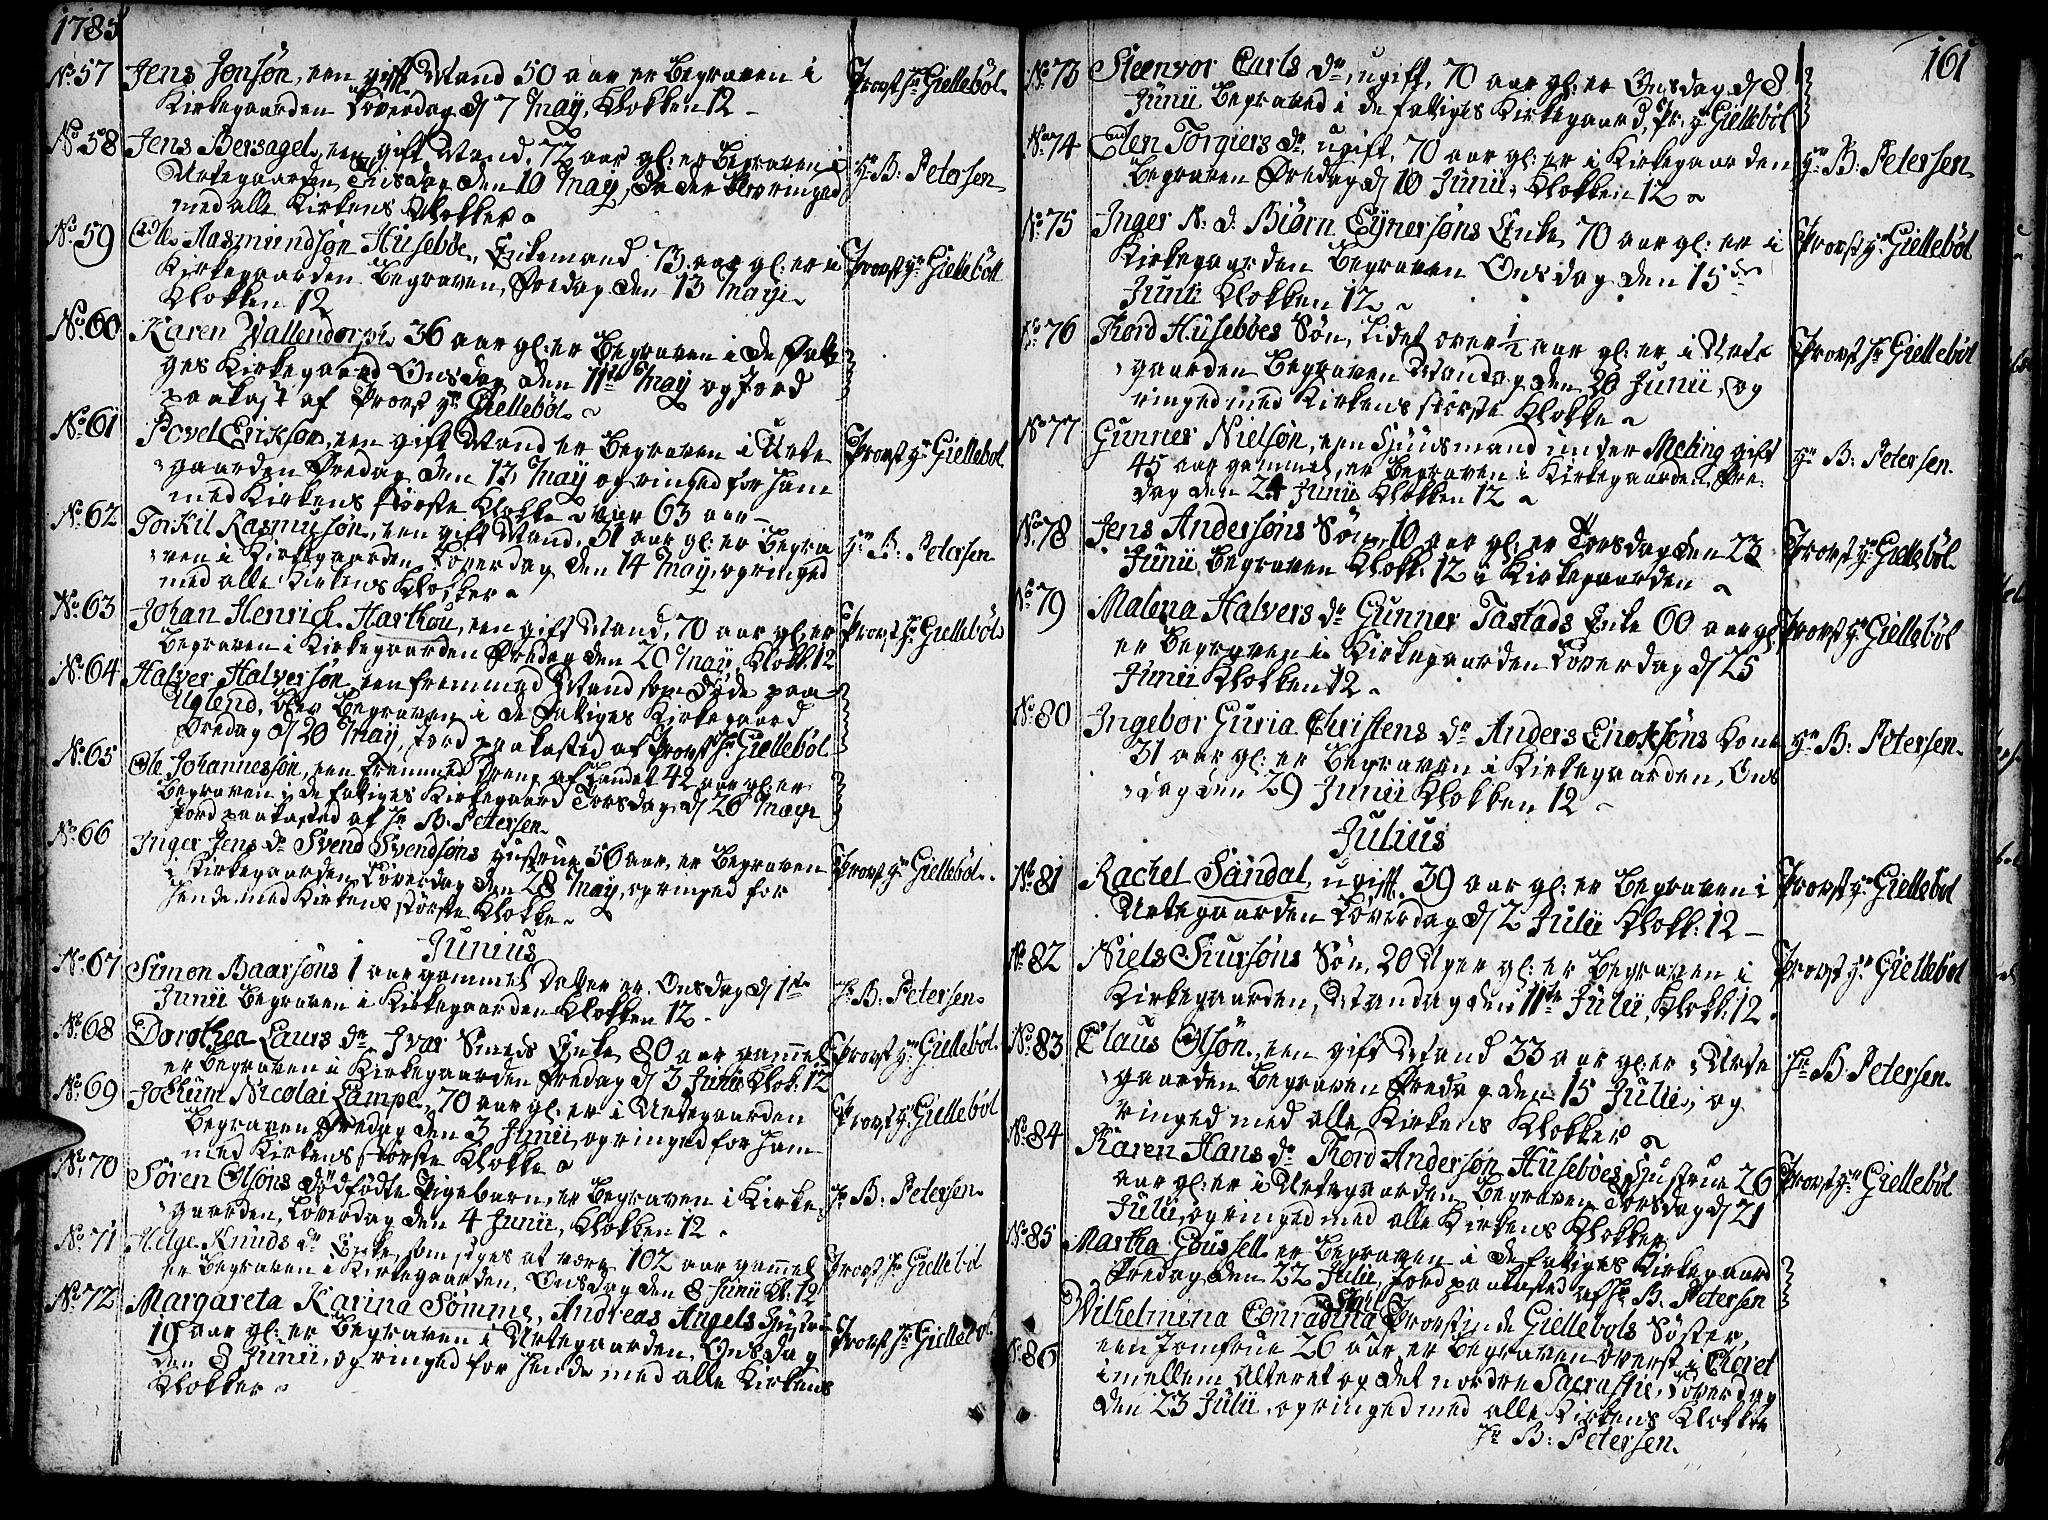 1785
No. 57 Jens Jonsøn, een gift Mand 50 aar er Begraven i Provst Hr. Giellebøl.
Kirkegaarden Løverdag d/ 7 May, Klokken 12 -
No. 58 Jens Bersagel, een gift Mand, 72 aar gl: er Begraven i
Urtegaarden Tiisdag den 10 May, da der blev ringed Hr. B: Petersen
med alle Kirkens Klokker
No. 59 Ole Aasmundsøn Husebøe, Enkemand 73 aar gl: er i Provst Hr. Giellebøll
Kirkegaarden Begraven, Fredag den 13 Maji
Klokken 12
No. 60 Karen Wallendorph 36 aar gl: er Begraven i de Fatti
ges Kirkegaard Onsdag den 11te May og Jord
paakast af Provst Hr. Giellebøl.
No. 61 Povel Erikson, een gift Mand er Begraven i Urte Provst Hr. Giellebøl
gaarden Fredag den 13 May og ringed for ham
med Kirkens største Klokke var 63 aar -
No. 62 Torkil Rasmusøn, een gift Mand, 51 aar gl: er Begra Hr. B: Petersen
ven i Kirkegaarden Løverdag den 14 May, og ringed
med alle Kirkens Klokker
No. 63 Johan Henrich Harthou, een gift Mand, 70 aar gl: er Provst Hr. Giellebøl
Begraven i Kirkegaarden Fredag den 20 May, Klokk: 12
No. 64 Halver Halversøn een fremmed Mand som døde paa
Uglend, blev Begraven i de Fattiges Kirkegaard
Fredag d/ 20 May, Jord paakasted af Provst Hr. Giellebøl
No. 65 Ole Johannessøn, een fremmed Dreng af Landet 42 aar gl: er
Begraven i de fattiges Kirkegaard Torsdag d/ 26 May
Jord paakasted af Hr. B: Petersen.
No. 66 Inger Jens Dr. Svend Svendsøns Hustrue 56 aar, er Begraven Provst Hr. Giellebøl.
i Kirkegaarden Løverdag den 28 May, og ringed for
hende med Kirkens største Klokke
Junius
No. 67 Simon Baarsøns 1 aar gammel Datter er Onsdag d/ 1ste Hr. B: Petersen.
Junii Begraven i Kirkegaarden Klokken 12.
No. 68 Dorothea Laurs Dr. Ivar Smeds Enke 80 aar gammel Provst Hr. Giellebøl.
er Begraven i Kirkegaarden Fredag d/ 3 Junii Klok: 12
No. 69 Jochum Nicolai Lampe, 70 aar gl: er i Urtegaarden Provst Hr. Giellebøl
Begraven Fredag den 3 Junii, og ringed for ham
med Kirkens største Klokke
No. 70 Søren Olsøns dødfødte Pigebarn, er Begraven i Kirke Hr. B: Petersen.
gaarden, Løverdag den 4 Junii, Klokken 12.
No. 71 Helge Knuds Dr. Enke, som siges at være 102 aar gammel Provst Hr. Giellebøl
er Begraven i Kirkegaarden, Onsdag den 8 Junii Kl: 12
No. 72 Margareta Karina Sømme, Andreas Angels
19 aar gl: er Begraven i Urtegaarden, Onsdag Provst Hr. Giellebøl.
den 8 Junii, og ringed for hende med alle Kirkens
Klokker
161
No. 73 Steenvor Carls Dr. ugift, 70 aar gl: er Onsdag d/ 8
Junii Begraved i de fattiges Kirkegaard, Pr. Hr. Giellebøl
No. 74 Elen Torgiers Dr. ugift, 70 aar gl: er i Kirkegaarden Hr. B: Petersen.
Begraven Fredag d/ 10 Junii, Klokken 12
No. 75 Inger N. D. Biørn Eynersøns Enke, 70 aar gl: er i Provst Hr. Giellebøl
Kirkegaarden Begraven Onsdag den 15de
Junii Klokken 12
No. 76 Tord Husebøes Søn, lidet over 1/2 aar gl: er i Urte Provst Hr. Giellebøl
gaarden Begraven Mandag den 20 Junii, og
ringed med Kirkens største Klokke
No. 77 Gunner Nielsøn, een Huusmand under Meling gift Hr. B: Petersen.
45 aar gammel, er Begraven i Kirkegaarden, Fre:
dag den 24 Junii Klokken 12
No. 78 Jens Andersøns Søn, 10 aar gl: er Torsdag den 23 Provst Hr. Giellebøl
Junii Begraven Klokk: 12 i Kirkegaarden
No. 79 Malena Halvers Dr. Gunner Tastads Enke 60 aar gl: Provst Hr. Giellebøl
er Begraven i Kirkegaarden Løverdag d/ 25
Junii Klokken 12
No. 80 Ingebor Guria Christens Dr. Anders Enoksøns Kone Hr. B: Petersen.
31 aar gl: er Begraven i Kirkegaarden, Ons
dag den 29 Junii Klokken 12
Julius
No. 81 Rachel Sandal, ugift, 39 aar gl: er Begraven i Provst Hr. Giellebøl
Urtegaarden Løverdag d/ 2 Julii Klokk: 12 -
No. 82 Niels Siursøns Søn, 20 Uger gl: er Begraven i Provst Hr. Giellebøl
Kirkegaarden, Mandag den 11te Julii, Klokk: 12.
No. 83 Claus Olsøn, een gift Mand 33 aar gl: er i Urte Hr. B: Petersen.
gaarden Begraven Fredag den 15 Julii, og
ringed med alle Kirkens Klokker
No. 84 Karen Hans Dr. Tord Andersøn Husebøes Hustrue 26 Provst Hr. Giellebøl
aar gl: er i Urtegaarden Begraven Torsdag d/ 21
Julii, og ringed med alle Kirkens Klokker
No. 85 Martha Goussell er Begraven i de fattiges Kirkegaard
Fredag den 22 Julii, Jord paakasted af Hr. B. Petersen
Wilhelmina Conradina Provstinde Giellebøls Søster,
No. 86 een Jomfrue 26 aar, er Begraven øverst i Choret
imellem Alteret og det nordre Sacrastie, Løverdag
den 23 Julii, og ringed med alle Kirkens Klokker
Hr. B: Petersen.